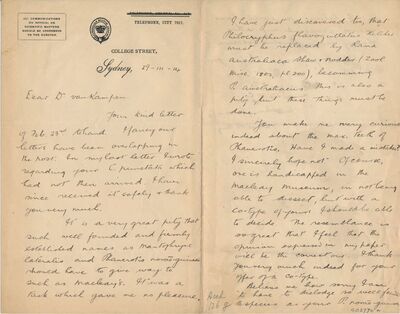 ALL COMMUNICATIONS
ON OFFICIAL OR
SCIENTIFIC MATTERS
SHOULD BE ADDRESSED
TO THE CURATOR.
TELEPHONE, CITY
COLLEGE STREET,
Sydney, 29-III-14
Dear Dr van Kampen
Your kind letter
of Feb 23rd to hand. I fancy our
letters have been overlapping in
the post. In my last letter I wrote
regarding your C. punctata which
had not then arrived. I have
since received it safely & thank
you very much.
It is a very great pity that
such well founded and firmly
established names as Mantophryne
lateralis and Phanerotis novae-guineae
should have to give way
to such as Macleay's. It was a
task which gave me no pleasure.
I have just discovered too, that
Philocryphus flavoguttatus Fletcher
must be replaced by Rana
australiaca Shaw & Nodder (Zool
Misc. 1802, pl 200), becoming
P. australiacus. This is also a
pity, but these things must be
done.
You make me very curious
indeed about the max. teeth of
Phanerotis. Have I made a mistake?
I sincerely hope not. Of course,
one is handicapped in the
Macleay Museum, in not being
able to dissect, but with a
co-type of yours I should be able
to decide. The resemblance is
so great that I feel that the
opinion expressed in my paper
will be the correct one. I thank
you very much indeed for your
offer of a co-type.
Believe me how sorry I am
to have to dislodge so well-founded
a species as your P. novae-guineae